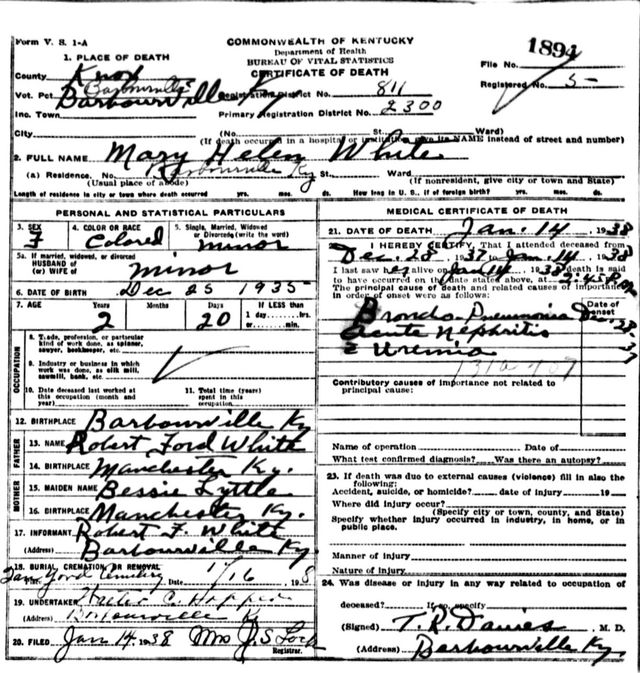 Form V. S. 1-A
COMMONWEALTH OF KENTUCKY
Department of Health
BUREAU OF VITAL STATISTICS
CERTIFICATE OF DEATH
File No. 1894
Registered No. 5
1. PLACE OF DEATH
County Knox
Vot. Pct. Barbourville
Barbourville Ky
Registration District No. 811
Inc. Town
Primary Registration District No. 2300
City (No. St. Ward)
(If death occurred in a hospital or institution give its NAME instead of street and number)
2. FULL NAME Mary Helen White
(a) Residence. No. Barbourville Ky St. Ward
(Usual place of abode) (If nonresident, give city or town and State)
Length of residence in city or town where death occurred yrs. mos. ds. How long in U. S., if of foreign birth? yrs. mos. ds.
PERSONAL AND STATISTICAL PARTICULARS
3. SEX F
4. COLOR OR RACE Colored
5. Single, Married, Widowed or Divorced (write the word) minor
5a. If married, widowed, or divorced
HUSBAND of
(or) WIFE of minor
6. DATE OF BIRTH Dec 25 1935
7. AGE Years 2 Months Days 20 If LESS than
1 day, hrs.
or min.
OCCUPATION
8. Trade, profession, or particular
kind of work done, as spinner,
sawyer, bookkeeper, etc.
9. Industry or business in which
work was done, as silk mill,
sawmill, bank, etc.
10. Date deceased last worked at
this occupation (month and
year)
11. Total time (years)
spent in this
occupation
12. BIRTHPLACE Barbourville Ky
FATHER
13. NAME Robert Ford White
14. BIRTHPLACE Manchester Ky.
MOTHER
15. MAIDEN NAME Bessie Lyttle
16. BIRTHPLACE Manchester Ky.
17. INFORMANT Robert F. White
(Address) Barbourville Ky.
18. BURIAL, CREMATION OR REMOVAL
Cemetery Date 1/16 1938
19. UNDERTAKER
(Address) Barbourville Ky
20. FILED Jan 14 1938 Mrs J. S. Lock
Registrar.
MEDICAL CERTIFICATE OF DEATH
21. DATE OF DEATH Jan. 14 1938
I HEREBY CERTIFY, That I attended deceased from
Dec. 28 1937 to Jan. 14 1938
I last saw her alive on Jan 14 1938 death is said
to have occurred on the date stated above, at 2:45 P.m.
The principal cause of death and related causes of importance
in order of onset were as follows:
Date of onset
Broncho Pneumonia Dec. 28-37
acute Nephritis
c Uremia
Contributory causes of importance not related to
principal cause:
Name of operation Date of
What test confirmed diagnosis? Was there an autopsy?
23. If death was due to external causes (violence) fill in also the
following:
Accident, suicide, or homicide? date of injury 19
Where did injury occur?
(Specify city or town, county, and State)
Specify whether injury occurred in industry, in home, or in
public place.
Manner of injury
Nature of injury
24. Was disease or injury in any way related to occupation of
deceased? If so, specify
(Signed) T. R. Davies M. D.
(Address) Barbourville Ky.